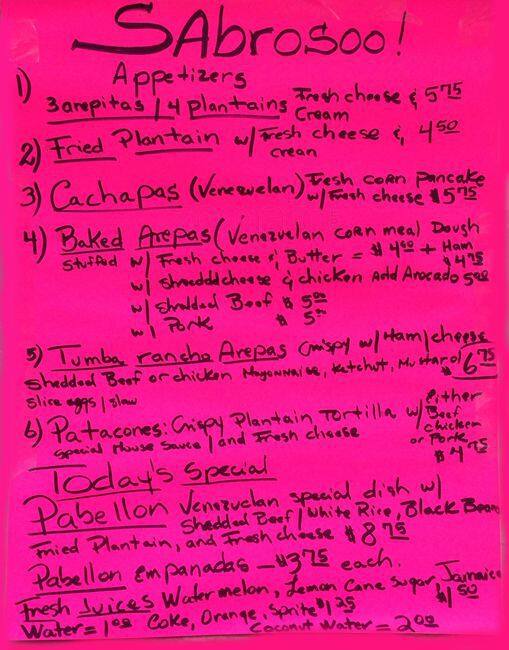 SAbrosoo!
Appetizers
1) 3 arepitas / 4 plantains Fresh cheese & $5.75
Cream
2) Fried Plantain w/ Fresh cheese & 4.50
crean
3) Cachapas (Venezuelan) Fresh corn pancake
w/ Fresh cheese $5.75
4) Baked Arepas (Venezuelan corn meal Dough
Stuffed w/ Fresh cheese & Butter = $4.00 + Ham
$4.75
w/ shredded cheese & chicken Add Avocado 5.00
w/ shredded Beef $5.00
w/ Pork $5.00
5) Tumba rancho Arepas Crispy w/ Ham/cheese
Shedded Beef or chicken Mayonnaise, Ketchut, Mustard $6.75
slice eggs / slaw
6) Patacones: Crispy Plantain Tortilla w/ Either
Beef
chicken
or Pork
special House sauce / and Fresh cheese $4.75
Today's Special
Pabellon Venezuelan special dish w/
Shedded Beef / White Rice, Black Beans
Fried Plantain, and Fresh cheese $8.75
Pabellon empanadas - $3.75 each.
Fresh Juices Watermelon, Lemon Cane Sugar, Jamaica
$1.50
Water = 1.00 Coke, Orange, Sprite $1.25
Coconut Water = 2.00